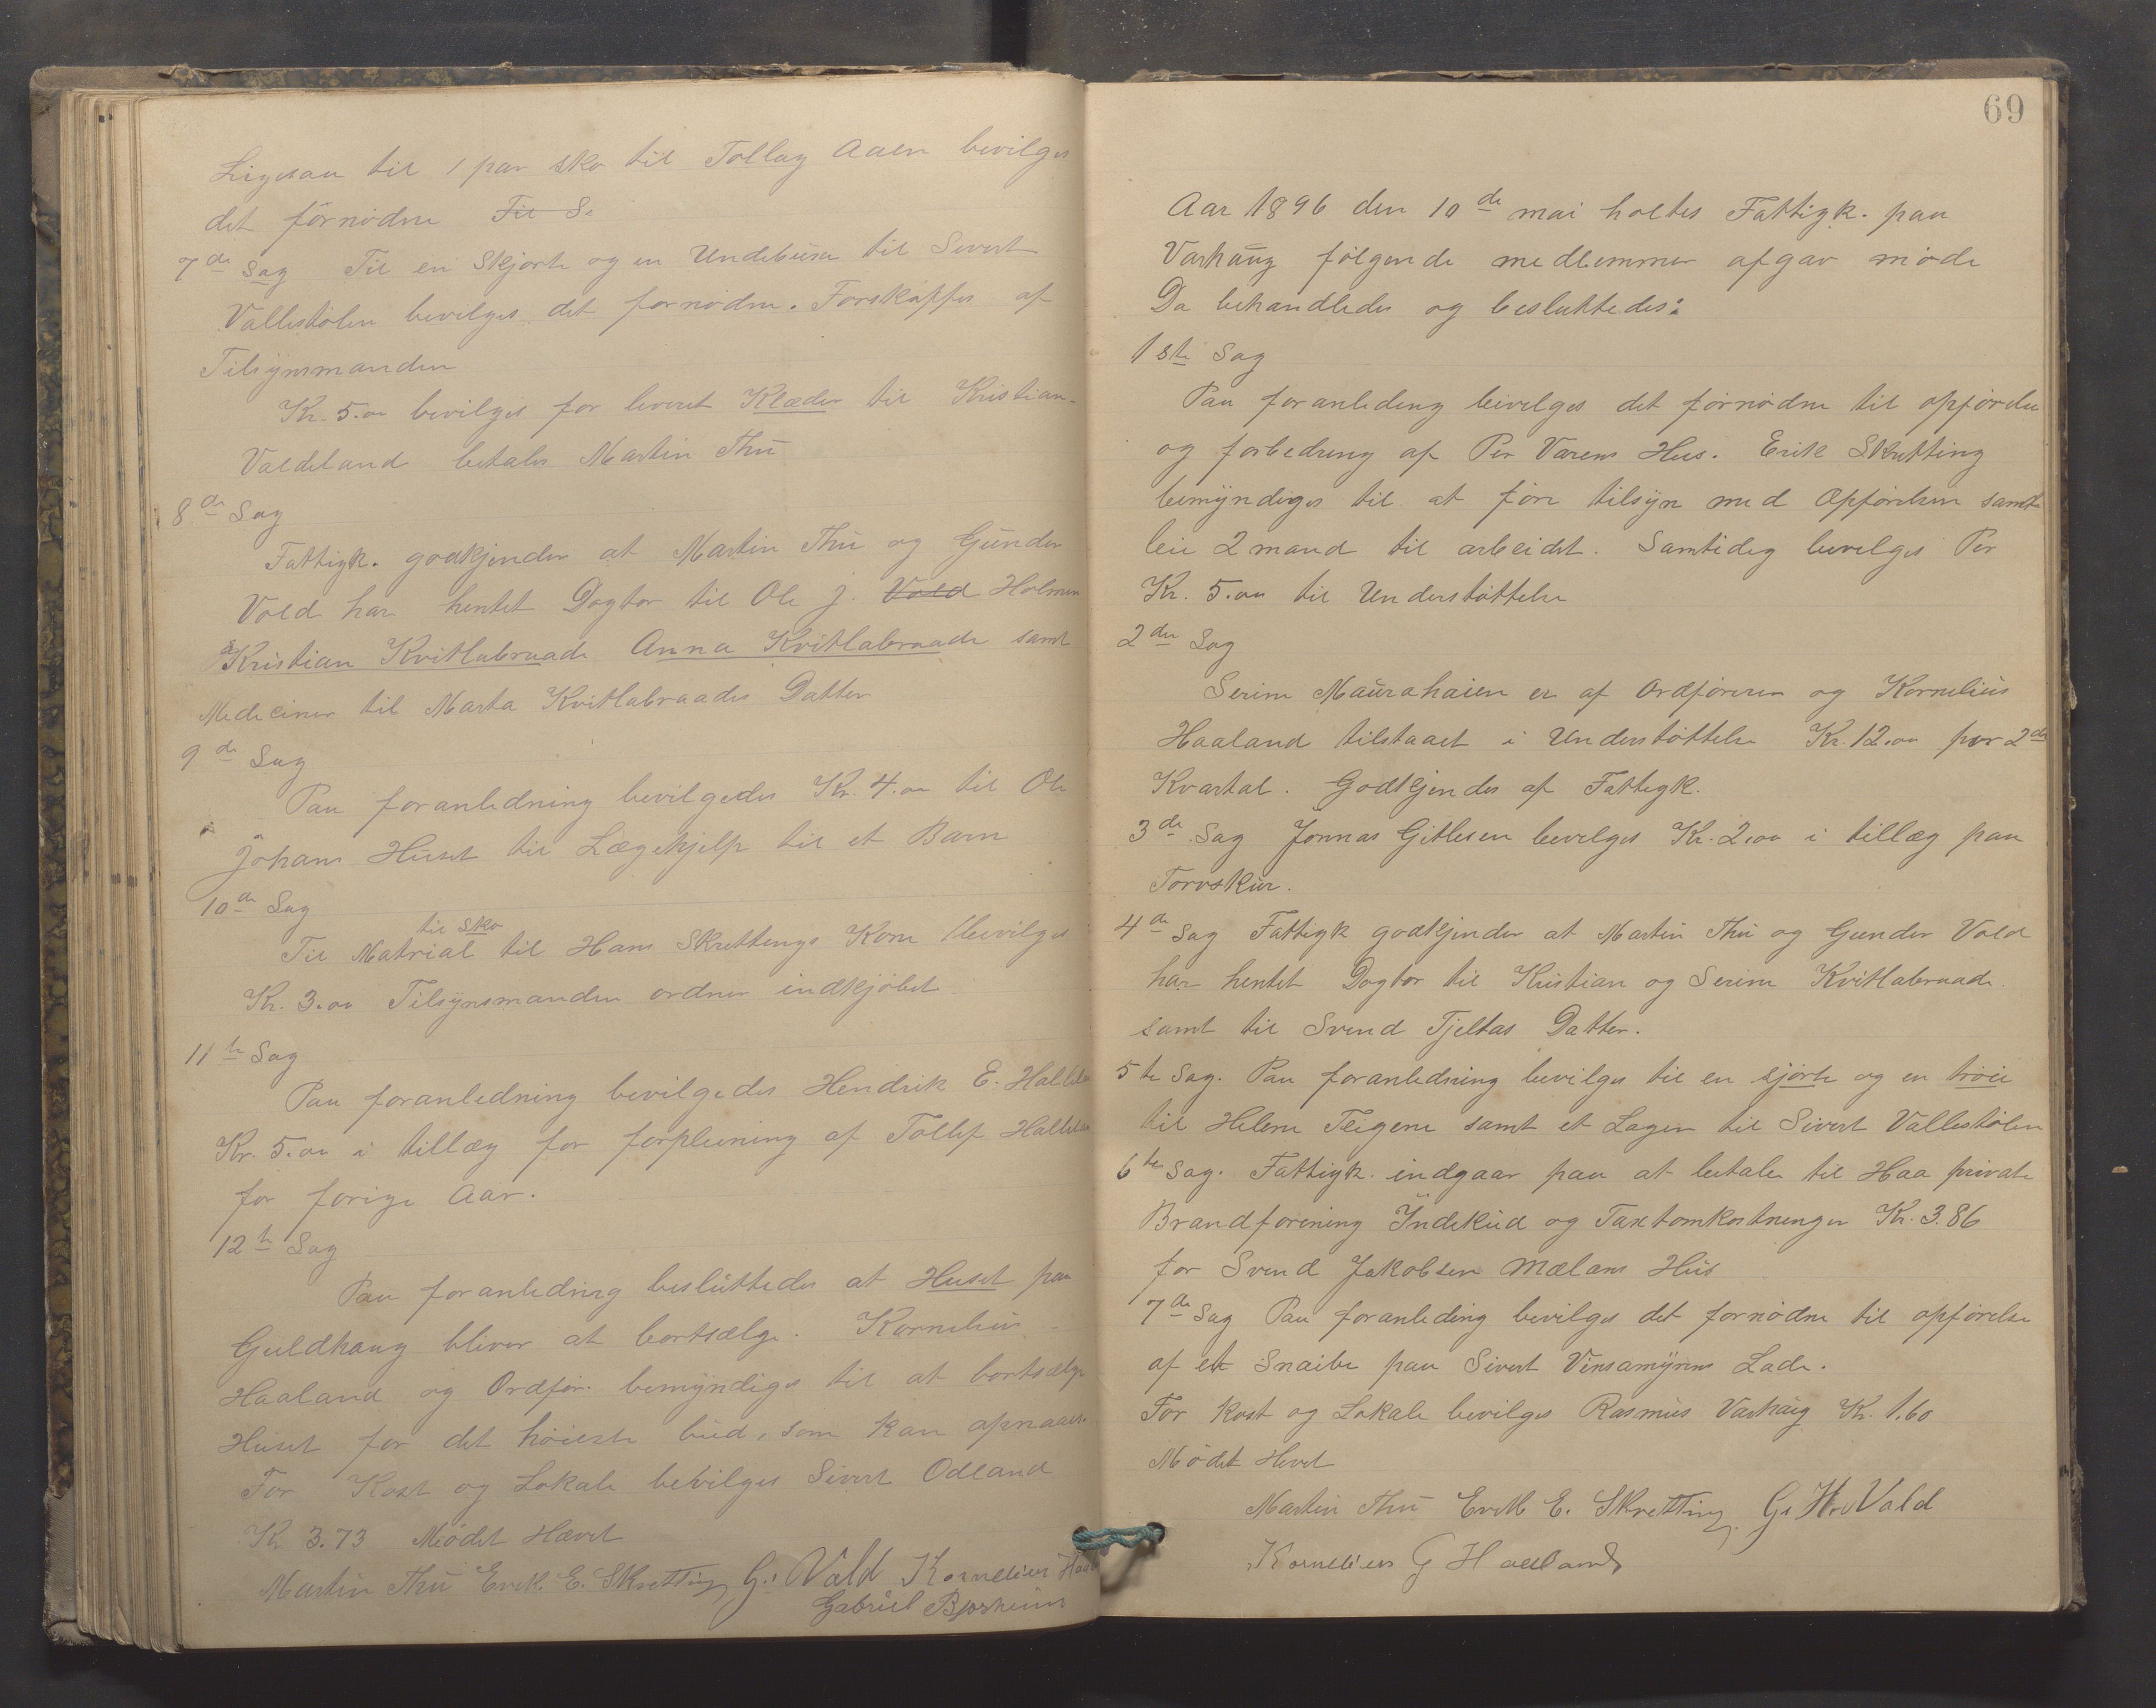 Ligesaa til 1 par sko til Tollag Aaen bevilges
det förnødne Til S.
7de Sag Til en Skjorte og en Undebuxe til Sivert
Vallestølen bevilges det fornødne. Forskaffes af
Tilsynsmanden
Kr. 5.00 bevilges for leveret Klæder til Kristian
Valdeland betales Martin Thu
8de Sag
Fattigk. godkjender at Martin Thu og Gunder
Vold har hentet Dogtor til Ole J. Vold Holmen
Kristian Kvitlabraade Anna Kvitlabraade samt
Mediciner til Marta Kvitlabraades Datter
9de Sag
Paa foranledning bevilgedes Kr. 4.00 til Ole
Johans Huset til Lægehjelp til et Barn
10de Sag
til Sko
Til Matrial til Hans Skrettings Kone bevilges
Kr. 3.00 Tilsynsmanden ordner indkjöbet
11te Sag
Paa foranledning bevilgedes Hendrik E. Hallelan
Kr. 5.00 i tillæg for forpleining af Tollef Hallelan
for forige Aar.
12te Sag
Paa foranledning besluttedes at Huset paa
Guldhaug bliver at bortsælge. Kornelius
Haaland og Ordför. bemyndiges til at bortsælge
Huset for det høieste bud, som kan opnaaes.
For Kost og Lokale bevilges Sivert Odland
Kr 3.73 Mødet Hævet
Martin Thu Erik E. Skretting G. Vold Kornelius Haal
Gabriel Bjorheim
69
Aar 1896 den 10de mai holtes Fattigk. paa
Varhaug følgende medlemmer afgav møde
Da behandledes og besluttedes:
1ste Sag
Paa foranleding bevilges det førnødne til opførelse
og forbedring af Per Varens Hus. Erik Skretting
bemyndiges til at føre tilsyn med Opførelsen samt
leie 2 mand til arbeidet. Samtidig bevilges Per
Kr. 5.00 til Understøttelse
2den Sag
Serine Maurahaien er af Ordføreren og Kornelius
Haaland tilstaaet i Understøttelse Kr. 12.00 per 2de
Kvartal. Godkjendes af Fattigk.
3de Sag Jonnas Gitlesen bevilges Kr. 2.00 i tillæg paa
Torvskur.
4de Sag Fattigk godkjender at Martin Thu og Gunder Vold
har hentet Dogtor til Kristian og Serine Kvitlabraade.
samt til Svend Tjeltas Datter.
5te Sag. Paa foranledning bevilges til en sjörte og en tröie
til Helene Teigene samt et Lagen til Sivert Vallestølen
6te Sag. Fattigk. indgaar paa at betale til Haa private
Brandforening Indskud og Taxtomkostninger Kr. 3.86
for Svend Jakobsen Mælans Hus
7de Sag Paa foranleding bevilges det fornødne til opførelse
af et Snaibe paa Sivert Vinsamyrens Lade.
For Kost og Lokale bevilges Rasmus Varhaug Kr. 1.60
Mødet Hevet
Martin Thu Erik E. Skretting. G. H. Vold
Kornelius G Haaland